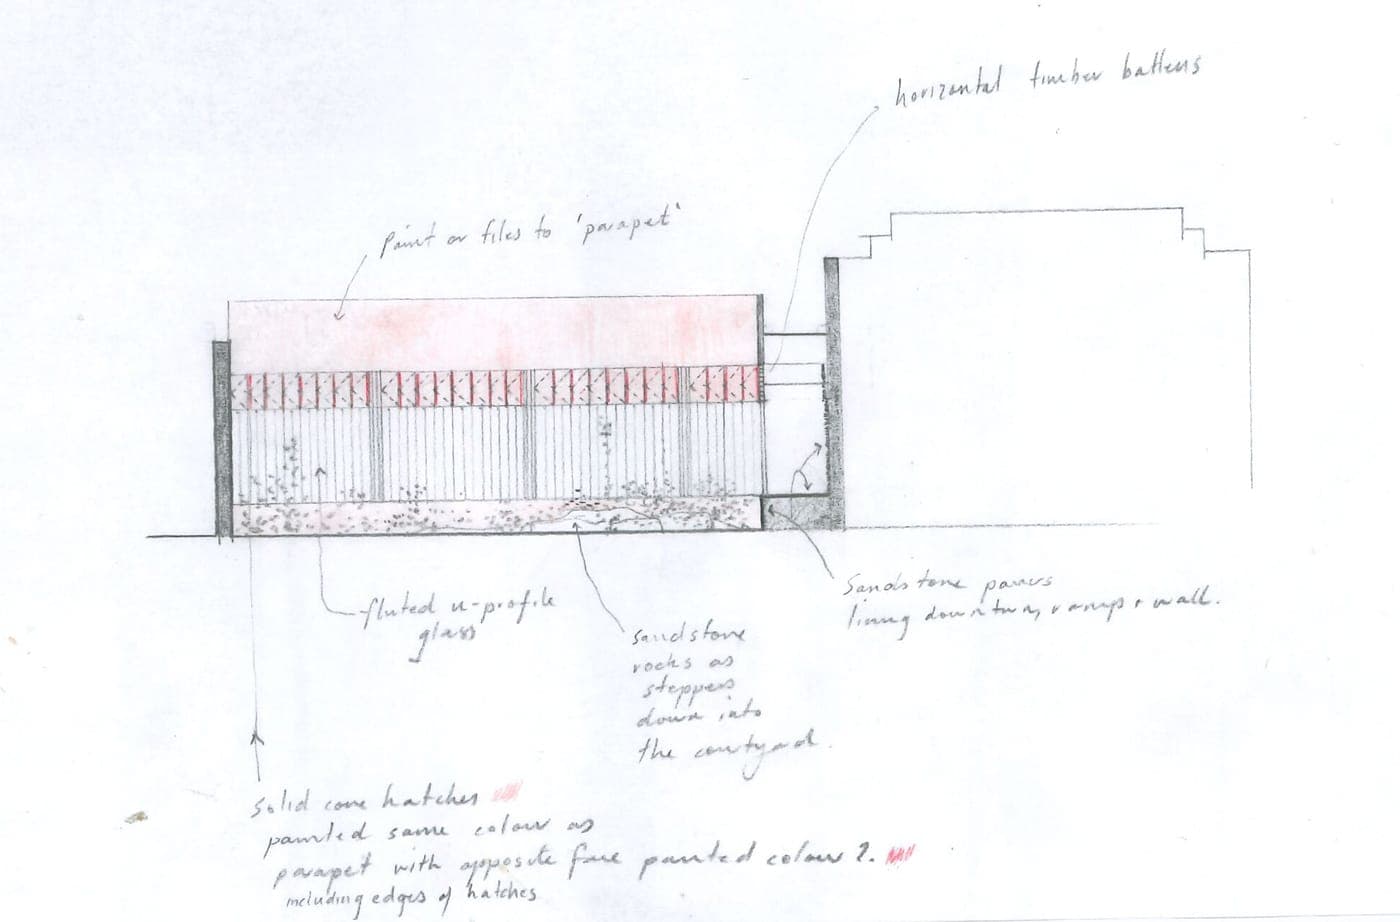 horizontal timber battens
paint or tiles to 'parapet'
fluted u-profile
glass
Sandstone pavers
lining down turn, ramp + wall.
sandstone
rocks as
steppers
down into
the courtyard.
Solid core hatches
painted same colour as
parapet with opposite face painted colour 2.
including edges of hatches